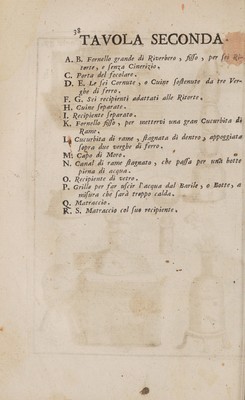 38
TAVOLA SECONDA.
A. B. Fornello grande di Riverbero, fisso, per sei Ri-
torte, e senza Cinerizio.
C. Porta del focolare.
D. E. Le sei Cornute, o Cuine sostenute da tre Ver-
ghe di ferro.
F. G. Sei recipienti adattati alle Ritorte.
H. Cuine separate.
I. Recipiente separato.
K. Fornello fisso, per mettervi una gran Cucurbita di
Rame.
L. Cucurbita di rame, stagnata di dentro, appoggiata
sopra due verghe di ferro.
M. Capo di Moro.
N. Canal di rame stagnato, che passa per una botte
piena di acqua.
O. Recipiente di vetro.
P. Grille per far uscir l'acqua dal Barile, o Botte, a
misura che sarà troppo calda.
Q. Matraccio.
R. S. Matraccio col suo recipiente.